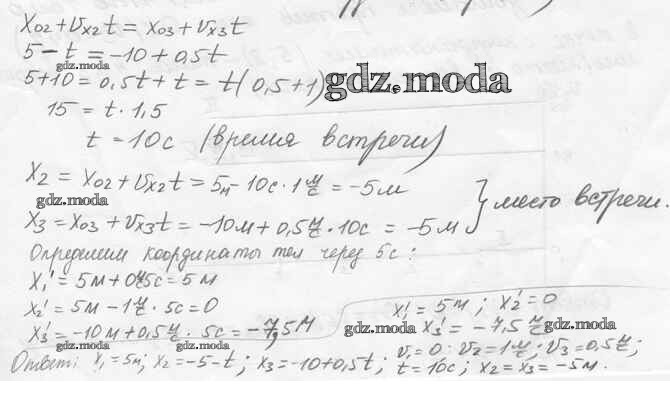 x₀₂ + υₓ₂t = x₀₃ + υₓ₃t
5 - t = -10 + 0,5t
gdz.moda
5 + 10 = 0,5t + t = t(0,5 + 1)
gdz.moda
15 = t · 1,5
t = 10с (время встречи)
x₂ = x₀₂ + υₓ₂t = 5м - 10с · 1 м/с = -5м
gdz.moda
x₃ = x₀₃ + υₓ₃t = -10м + 0,5 м/с · 10с = -5м } место встречи.
Определим координаты тел через 5с:
x₁' = 5м + 0 м/с · 5с = 5м
x₂' = 5м - 1 м/с · 5с = 0
x₃' = -10м + 0,5 м/с · 5с = -7,5м
x₁' = 5м; x₂' = 0
gdz.moda x₃' = -7,5 м/с gdz.moda
υ₁ = 0; υ₂ = 1 м/с; υ₃ = 0,5 м/с;
Ответ: x₁ = 5м; x₂ = -5 - t; x₃ = -10 + 0,5t; t = 10с; x₂ = x₃ = -5м.
gdz.moda gdz.moda